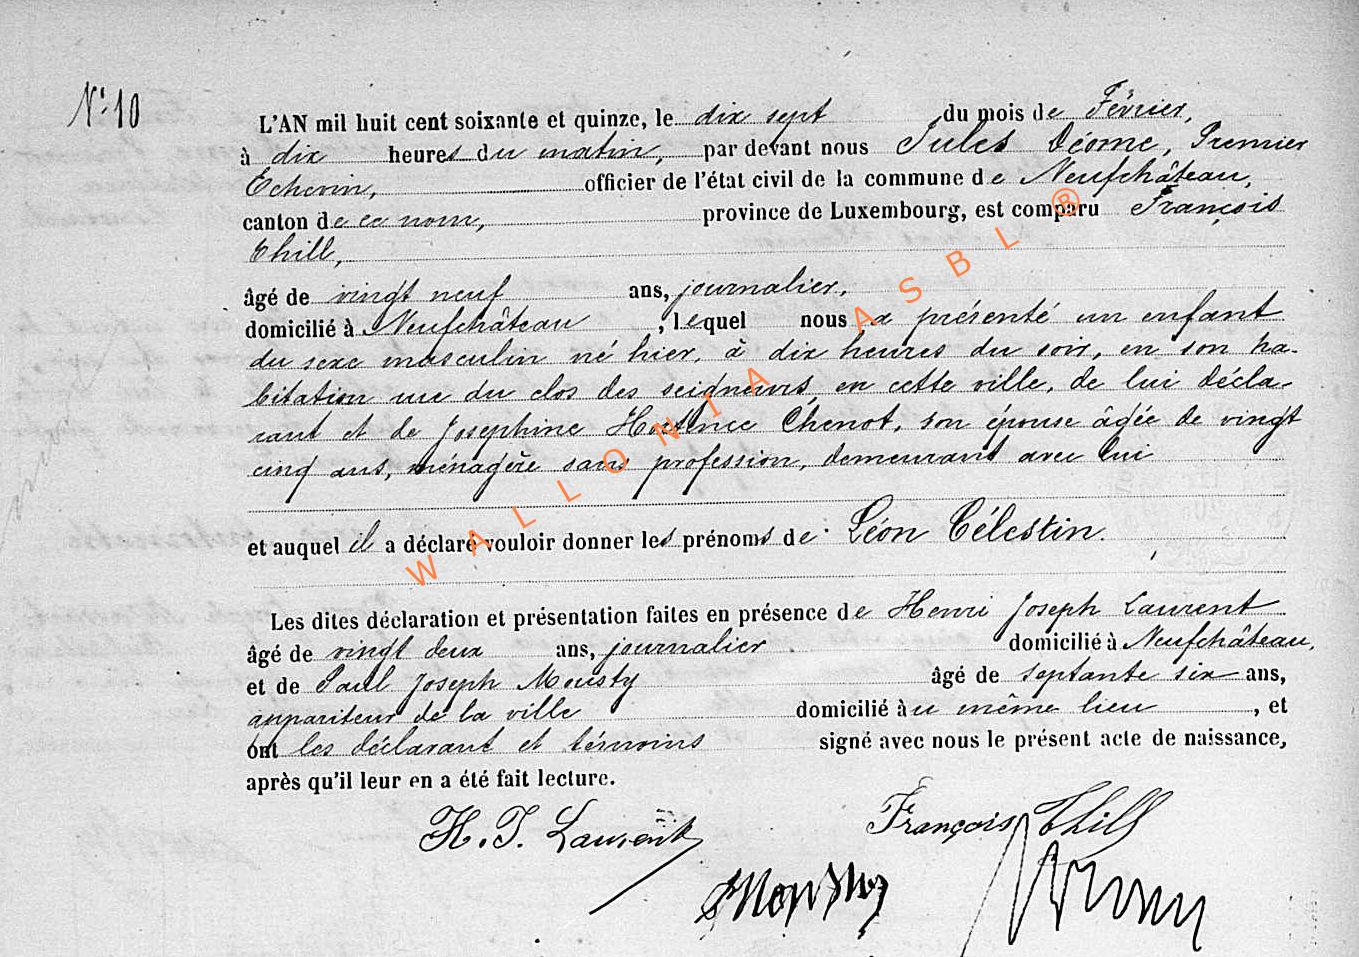 N° 10
L'AN mil huit cent soixante et quinze, le dix sept du mois de Février,
à dix heures du matin, par devant nous Jules Déome, Premier
Echevin, officier de l'état civil de la commune de Neufchâteau,
canton de ce nom, province de Luxembourg, est comparu François
Thill,
âgé de vingt neuf ans, journalier,
domicilié à Neufchâteau, lequel nous a présenté un enfant
du sexe masculin né hier, à dix heures du soir, en son ha-
bitation rue du clos des seigneurs, en cette ville, de lui décla-
rant et de Josephine Hortence Chenot, son épouse âgée de vingt
cinq ans, ménagère sans profession, demeurant avec lui
et auquel il a déclaré vouloir donner les prénoms de Léon Célestin.
Les dites déclaration et présentation faites en présence de Henri Joseph Laurent
âgé de vingt deux ans, journalier domicilié à Neufchâteau,
et de Paul Joseph Mousty âgé de septante six ans,
appariteur de la ville domicilié au même lieu, et
ont les déclarant et témoins signé avec nous le présent acte de naissance,
après qu'il leur en a été fait lecture.
H. J. Laurent François Thill
Mousty
WALLONIA ASBL ®